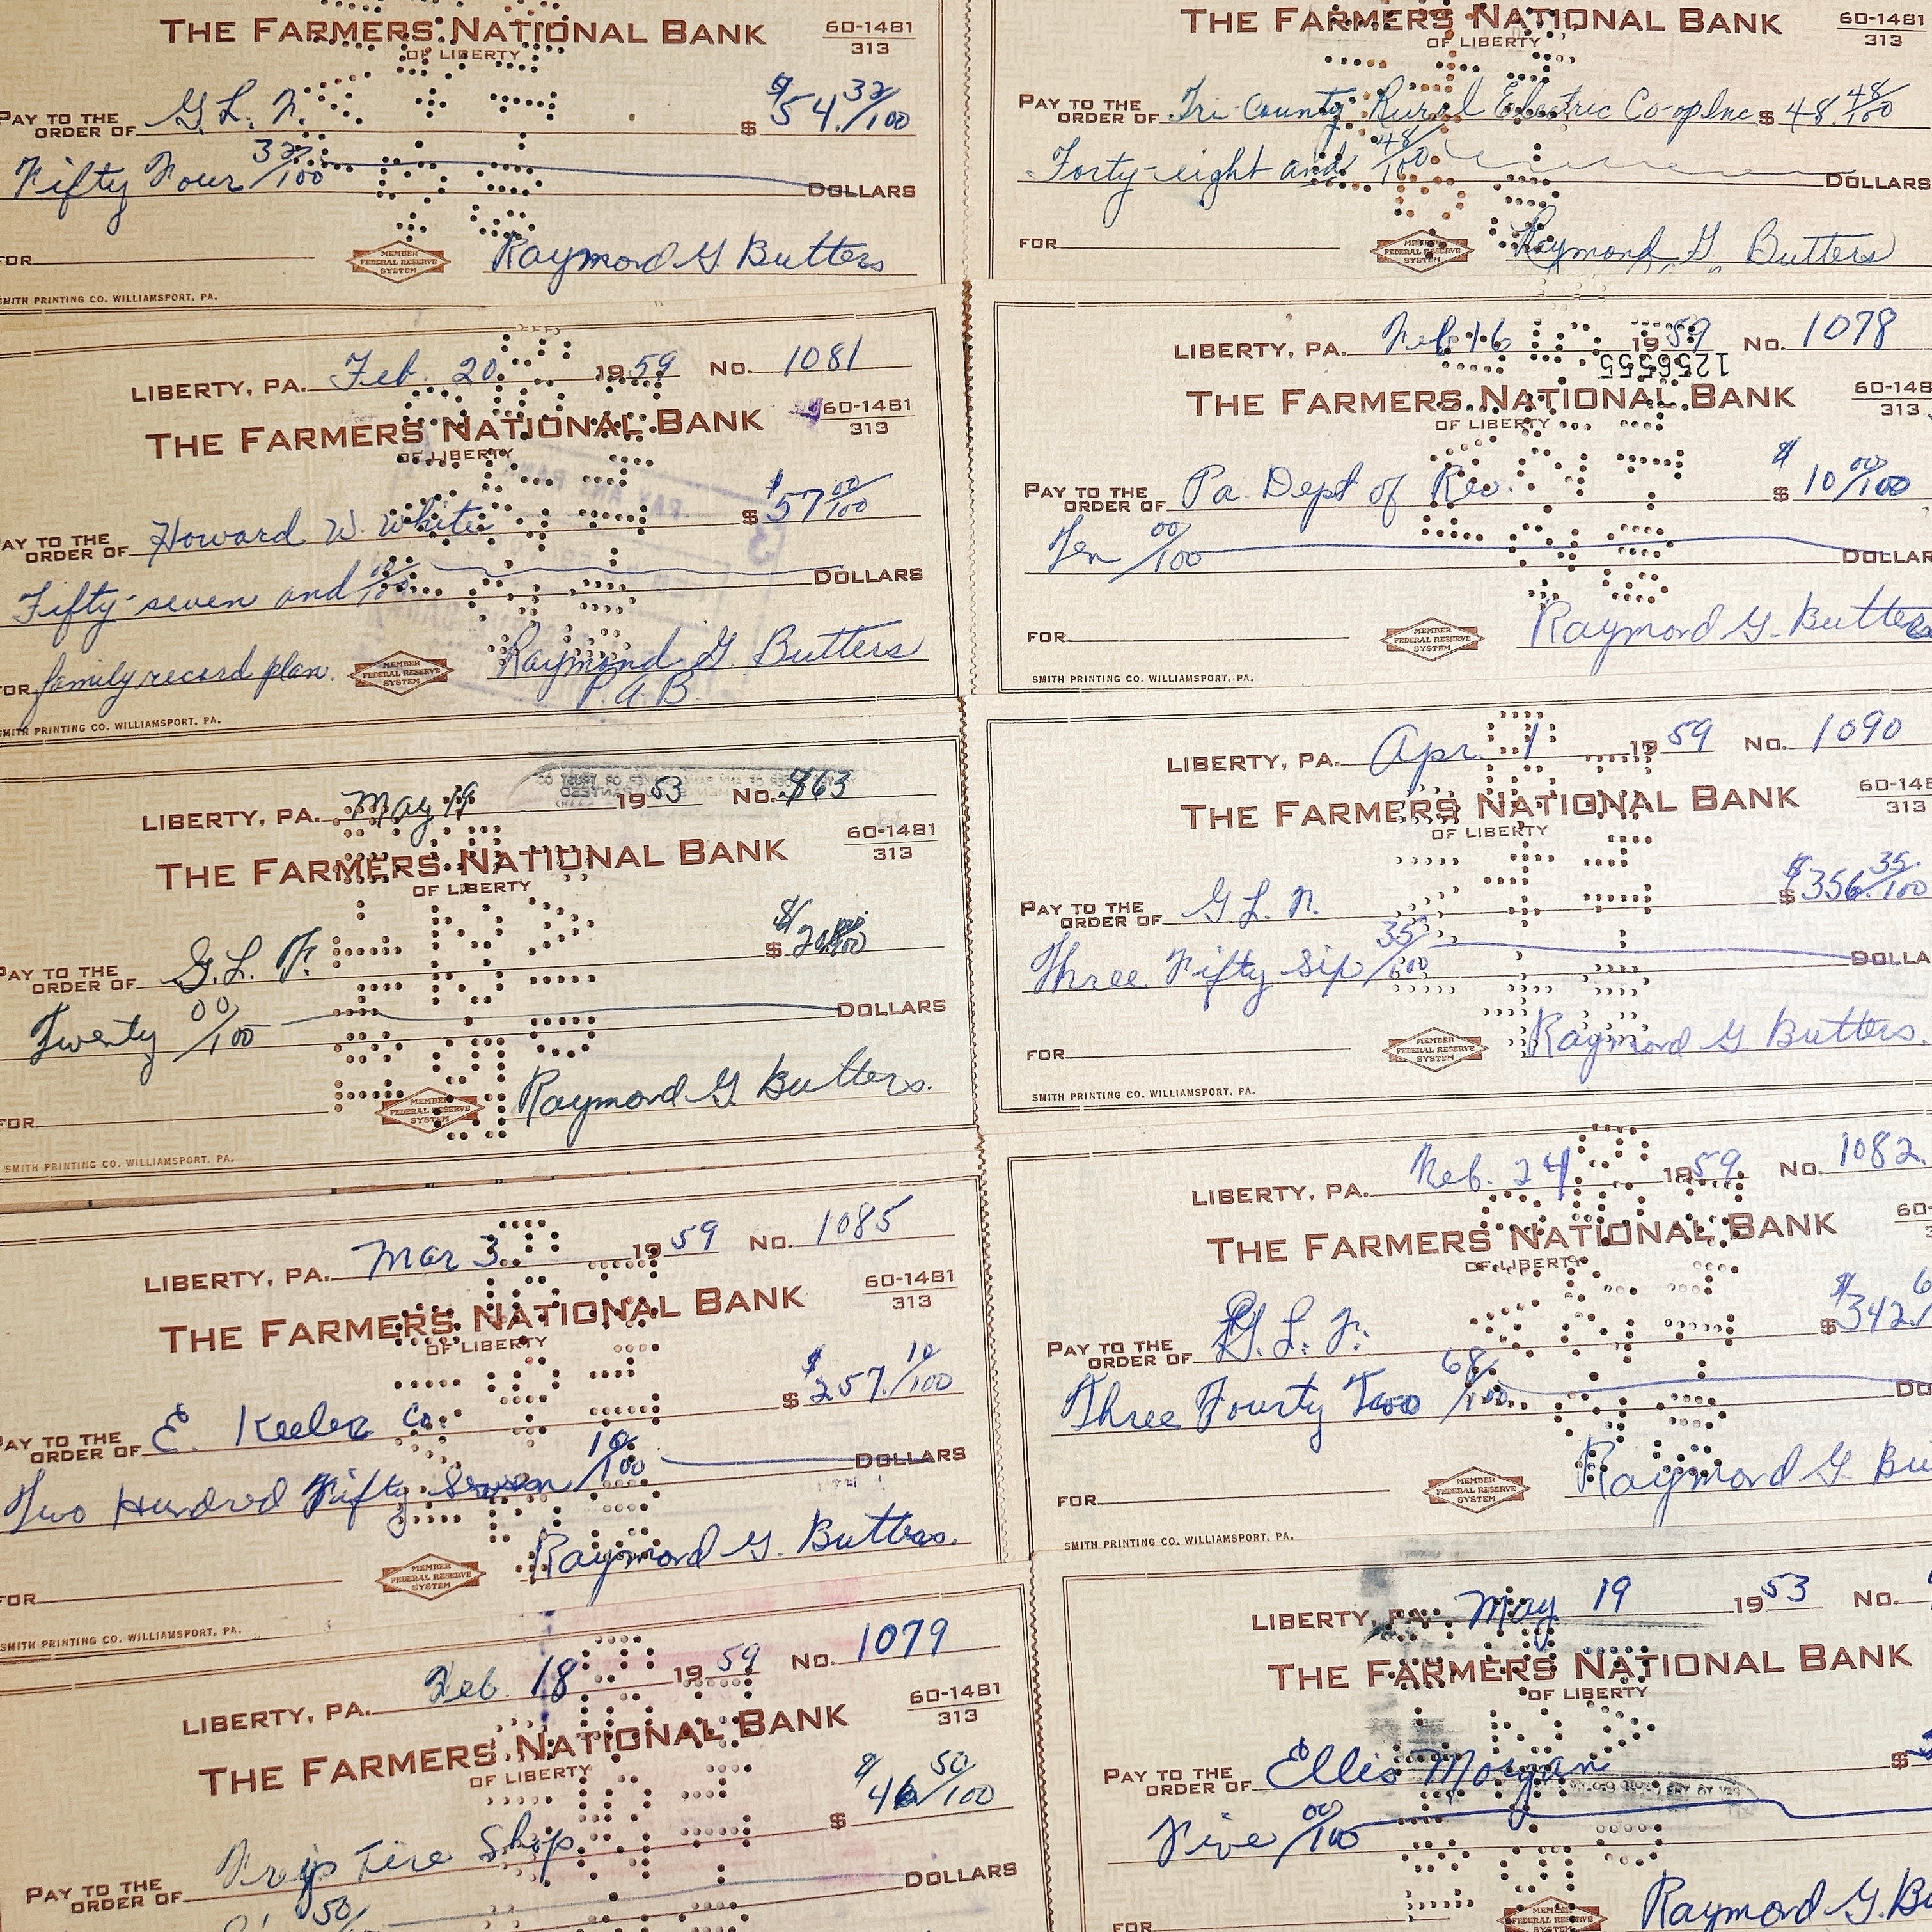 THE FARMERS NATIONAL BANK 60-1481
OF LIBERTY 313
PAY TO THE ORDER OF G. L. F. $ $54.32/100
Fifty Four 32/100 DOLLARS
FOR MEMBER FEDERAL RESERVE SYSTEM Raymond G Butters
SMITH PRINTING CO. WILLIAMSPORT, PA.
THE FARMERS NATIONAL BANK 60-1481
OF LIBERTY 313
PAY TO THE ORDER OF Tri-County Rural Electric Co-op Inc $ 48.48/100
Forty-eight and 48/100 DOLLARS
FOR MEMBER FEDERAL RESERVE SYSTEM Raymond G. Butters
LIBERTY, PA. Feb. 20 1959 No. 1081
THE FARMERS NATIONAL BANK 60-1481
OF LIBERTY 313
PAY TO THE ORDER OF Howard W. White $ $57 00/100
Fifty-seven and 00/100 DOLLARS
FOR family record plan. MEMBER FEDERAL RESERVE SYSTEM Raymond G. Butters
P.A.B.
SMITH PRINTING CO. WILLIAMSPORT, PA.
LIBERTY, PA. Feb 16 1959 No. 1078
1256555
THE FARMERS NATIONAL BANK 60-148
OF LIBERTY 313
PAY TO THE ORDER OF Pa. Dept of Rev. $ $10 00/100
Ten 00/100 DOLLAR
FOR MEMBER FEDERAL RESERVE SYSTEM Raymond G. Butters
SMITH PRINTING CO. WILLIAMSPORT, PA.
LIBERTY, PA. May 19 1953 No. 863
THE FARMERS NATIONAL BANK 60-1481
OF LIBERTY 313
PAY TO THE ORDER OF G. L. F. $ $20 00/100
Twenty 00/100 DOLLARS
FOR MEMBER FEDERAL RESERVE SYSTEM Raymond G. Butters.
SMITH PRINTING CO. WILLIAMSPORT, PA.
LIBERTY, PA. Apr. 1 1959 No. 1090
THE FARMERS NATIONAL BANK 60-148
OF LIBERTY 313
PAY TO THE ORDER OF G L. F. $ $356.35/100
Three Fifty Six 35/100 DOLLA
FOR MEMBER FEDERAL RESERVE SYSTEM Raymond G Butters.
SMITH PRINTING CO. WILLIAMSPORT, PA.
LIBERTY, PA. Mar 3 1959 No. 1085
THE FARMERS NATIONAL BANK 60-1481
OF LIBERTY 313
PAY TO THE ORDER OF E. Keeler Co. $ $257.10/100
Two Hundred Fifty Seven 10/100 DOLLARS
FOR MEMBER FEDERAL RESERVE SYSTEM Raymond G. Butters.
SMITH PRINTING CO. WILLIAMSPORT, PA.
LIBERTY, PA. Feb. 24 1959. No. 1082.
THE FARMERS NATIONAL BANK 60-
OF LIBERTY 3
PAY TO THE ORDER OF G. L. F. $ $342.6
Three Fourty Two 68/100 DO
FOR MEMBER FEDERAL RESERVE SYSTEM Raymond G Bu
SMITH PRINTING CO. WILLIAMSPORT, PA.
LIBERTY, PA. Feb 18 1959 No. 1079
THE FARMERS NATIONAL BANK 60-1481
OF LIBERTY 313
PAY TO THE ORDER OF Tire Shop $ $46 50/100
50/ DOLLARS
LIBERTY, PA. May 19 1953 No.
THE FARMERS NATIONAL BANK
OF LIBERTY
PAY TO THE ORDER OF Ellis Morgan $
Five 00/100
FOR MEMBER FEDERAL RESERVE Raymond G. Bu